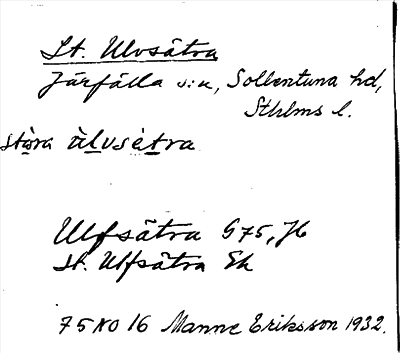 St. Ulvsätra
Järfälla s:n, Sollentuna hd,
Sthlms l.
stòra ùlvsètra
Ulfsätra G75, H
St. Ulfsätra Ek
75 NO 16 Manne Eriksson 1932.